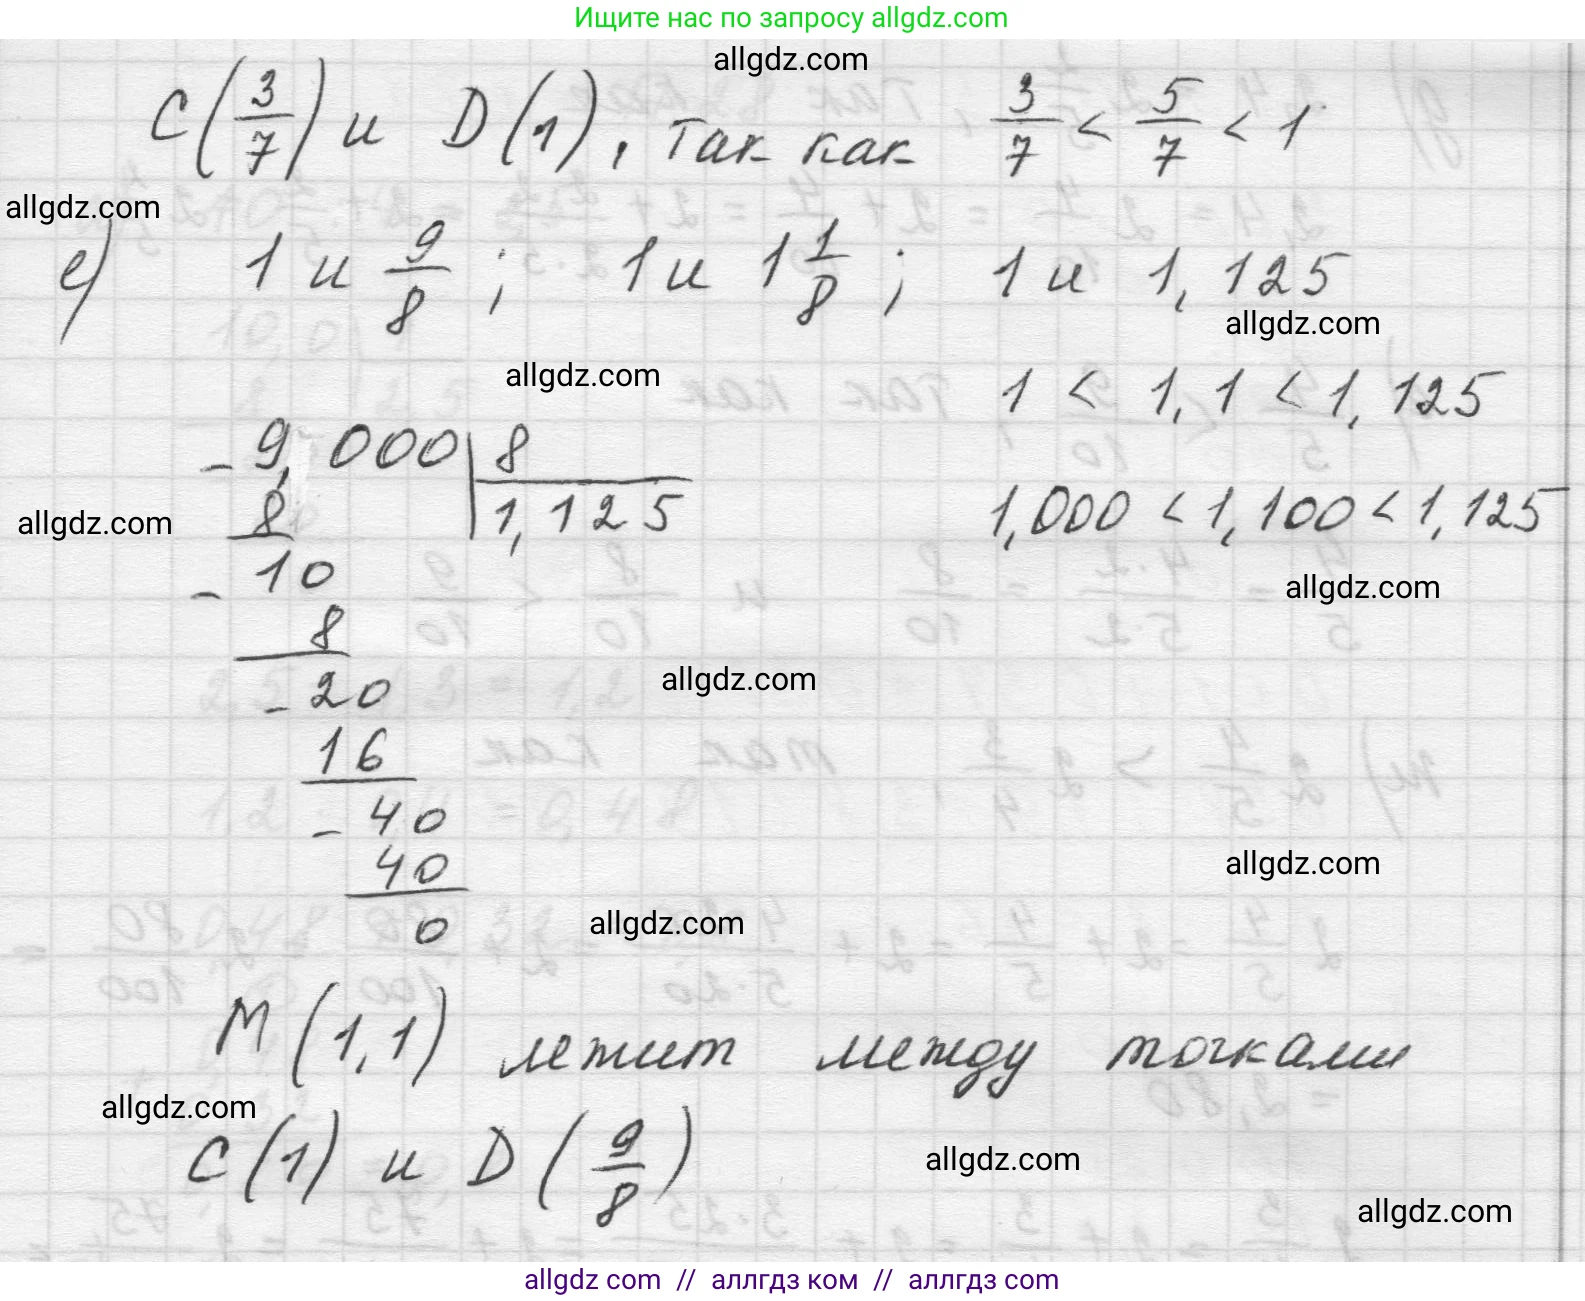 Ищите нас по запросу allgdz.com
allgdz.com
C(3/7) и D(1), так как 3/7 < 5/7 < 1
allgdz.com
е) 1 и 9/8; 1 и 1 1/8; 1 и 1,125
allgdz.com
allgdz.com
1 < 1,1 < 1,125
- 9,000 | 8
8 | 1,125
allgdz.com
1,000 < 1,100 < 1,125
- 10
allgdz.com
8
- 20
allgdz.com
16
- 40
40
allgdz.com
0
allgdz.com
M(1,1) лежит между точками
allgdz.com
C(1) и D(9/8)
allgdz.com
allgdz.com
allgdz com // аллгдз ком // аллгоз com